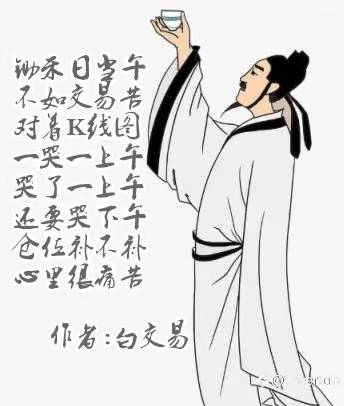 锄禾日当午
不如交易苦
对着K线图
一哭一上午
哭了一上午
还要哭下午
仓位补不补
心里很痛苦
作者:白交易